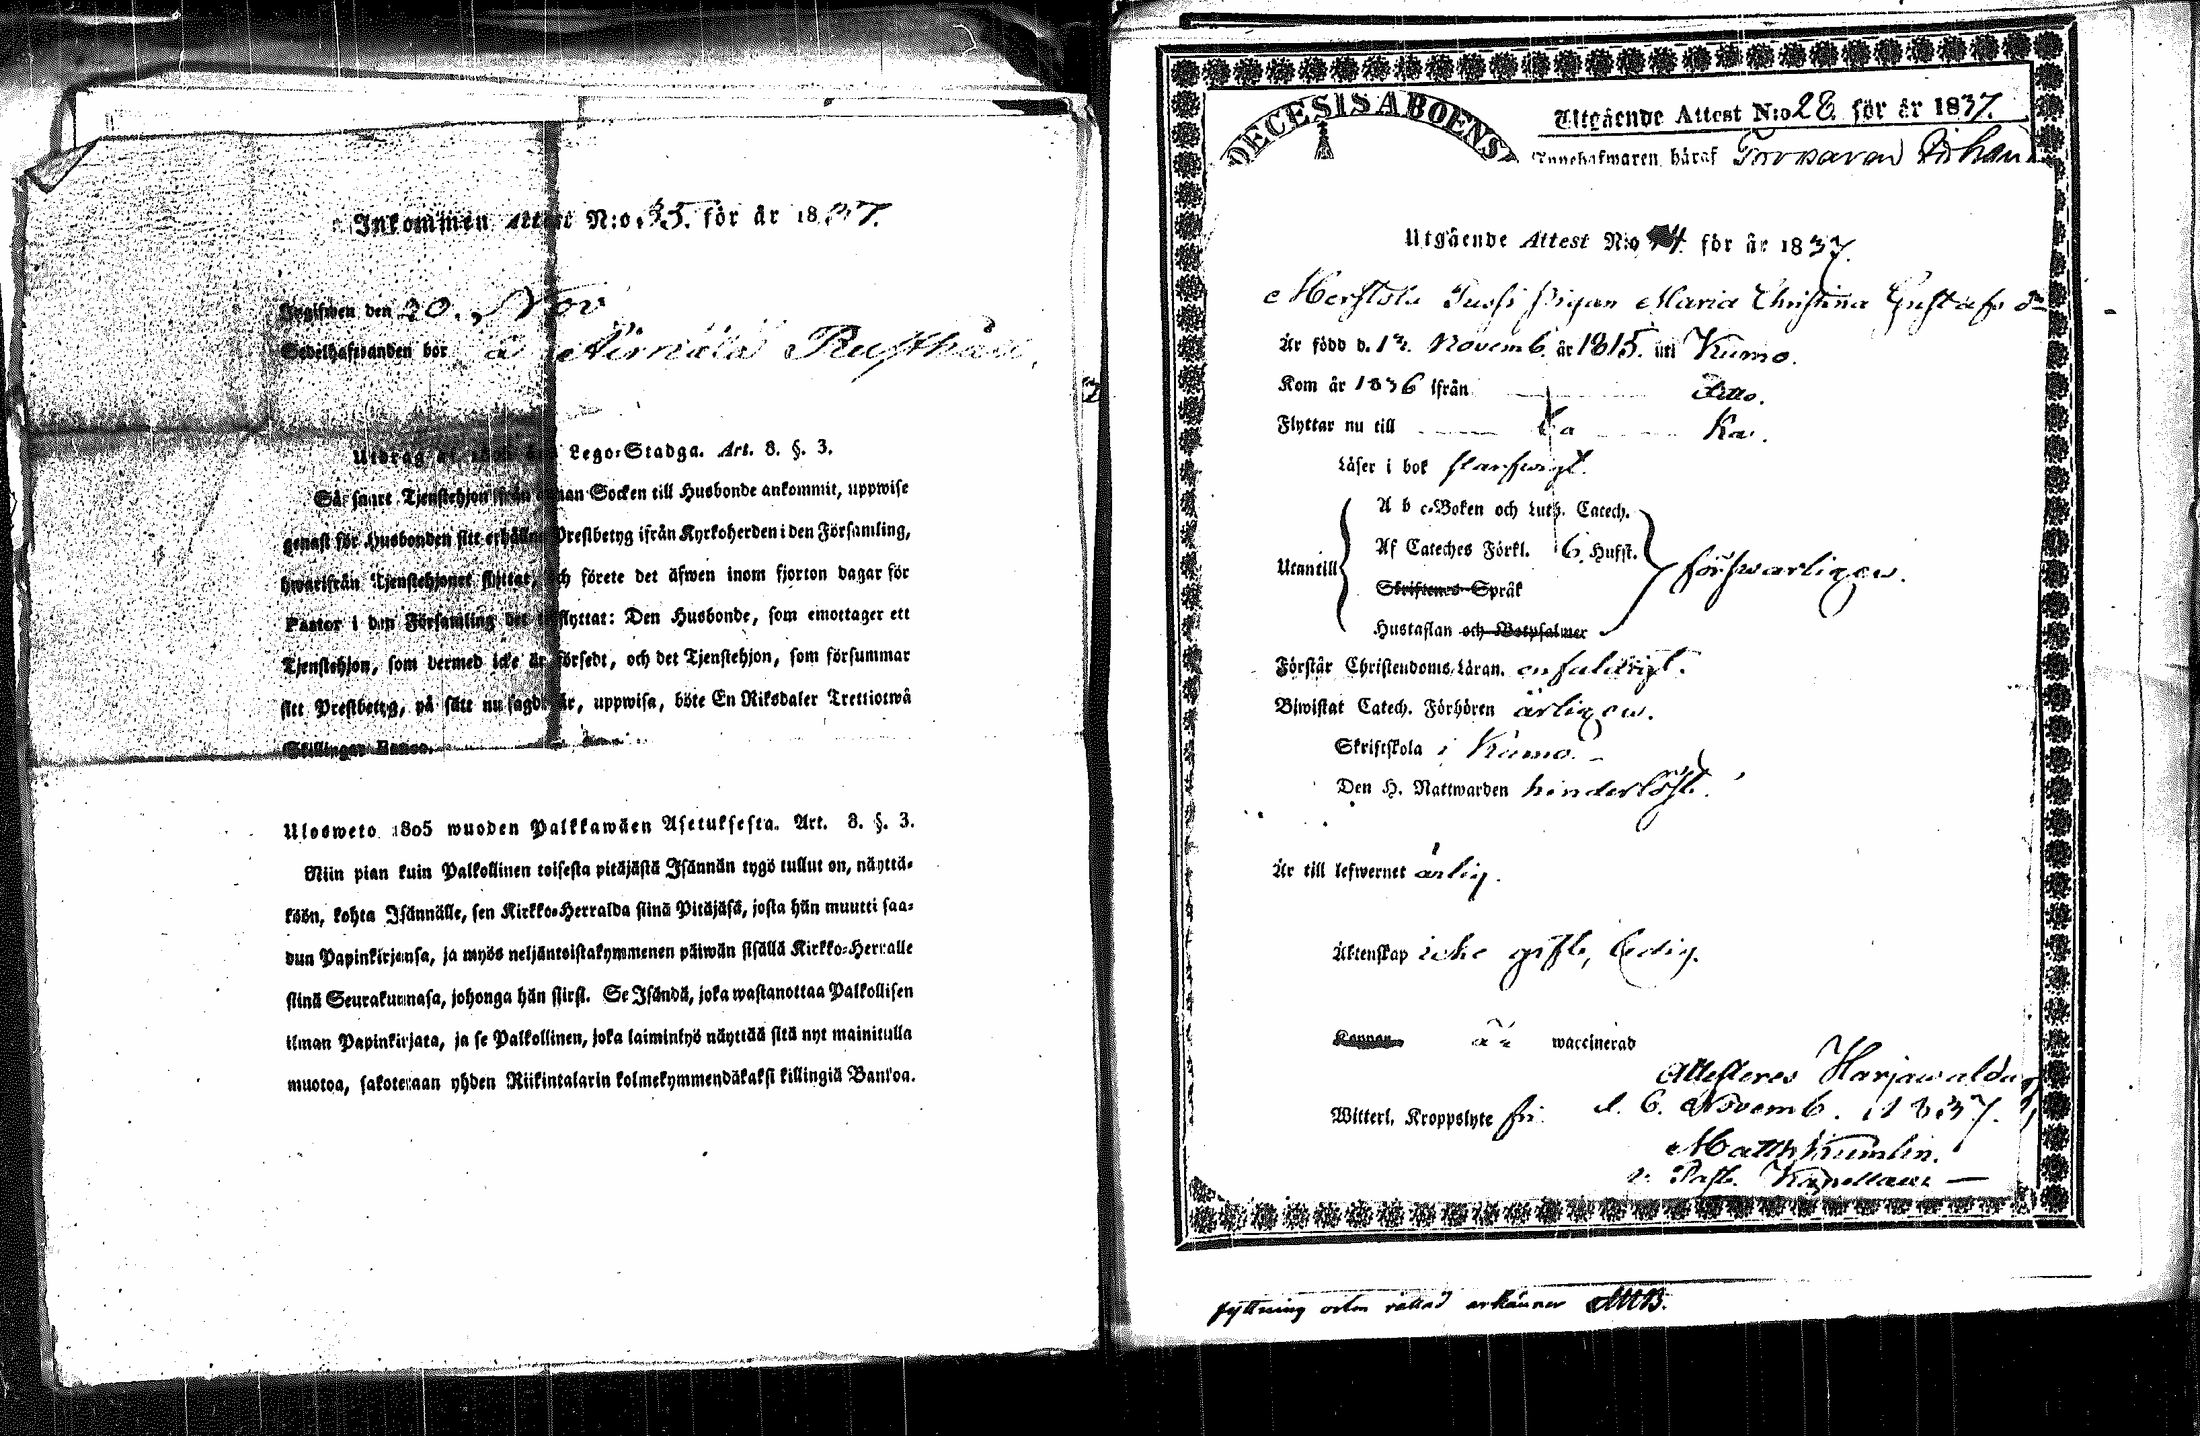 Inkommen Attest N:o 35. för år 1837.
Ingifwen den 20. Nov
Sedelhafwanden bor å Airiälä Rusthåll.
Utdrag af 1805 års Lego-Stadga. Art. 8. §. 3.
Så snart Tjenstehjon ifrån annan Socken till Husbonde ankommit, uppwise
genast för Husbonden sitt erhållne Prestbetyg ifrån Kyrkoherden i den Församling,
hwarifrån Tjenstehjonet flyttat, och förete det äfwen inom fjorton dagar för
Pastor i den Församling det inflyttat: Den Husbonde, som emottager ett
Tjenstehjon, som dermed icke är försedt, och det Tjenstehjon, som försummar
sitt Prestbetyg, på sätt nu sagdt är, uppwisa, böte En Riksdaler Trettiotwå
Skillingar Banco.
Ulosweto 1805 wuoden Palkkawäen Asetuksesta. Art. 8. §. 3.
Niin pian kuin Palkollinen toisesta pitäjästä Isännän tygö tullut on, näyttä-
köön, kohta Isännälle, sen Kirkko-Herralda siinä Pitäjäsä, josta hän muutti saa-
dun Papinkirjansa, ja myös neljäntoistakymmenen päiwän sisällä Kirkko-Herralle
siinä Seurakunnasa, johonga hän siirsi. Se Isändä, joka wastanottaa Palkollisen
ilman Papinkirjata, ja se Palkollinen, joka laiminlyö näyttää sitä nyt mainitulla
muotoa, sakotetaan yhden Riikintalarin kolmekymmendäkaksi killingiä Bankoa.
DECESIS ABOENS
Utgående Attest N:o 28. för år 1837.
Innehafwaren häraf Torparen Johan
Utgående Attest N:o 44. för år 1837.
Merstola Jussi Pigan Maria Christina Gustafs dr
Är född d. 12. Novemb. år 1815. uti Kumo.
Kom år 1836 ifrån Ditto.
Flyttar nu till
Läser i bok
A b c-Boken och Luth. Catech.
Af Cateches Förkl. 6. Hufst.
Utantill försvarligen.
Skriftenes Språk
Hustaflan och Botpsalmer
Förstår Christendoms Läran. enfaldigt.
Biwistat Catech. Förhören ärligen.
Skriftskola i Kumo.
Den H. Nattwarden hinderlöst.
Är till lefwernet ärlig.
Äktenskap icke gift, ledig.
Koppor är waccinerad
Attesteres Harjawalda
d. 6. Novemb. 1837.
Witterl. Kroppslyte fri.
Matth Kumlin.
v. Past. Kapellan
flyttning orten rättad erkänner MB.